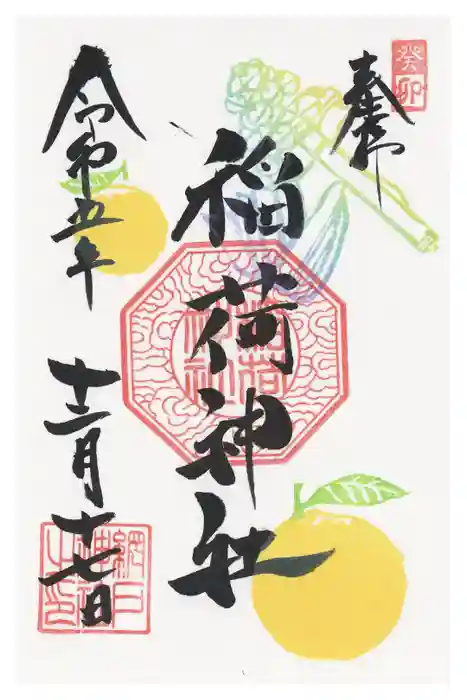 癸卯
奉拝
稲荷神社
令和五年
十二月十七日